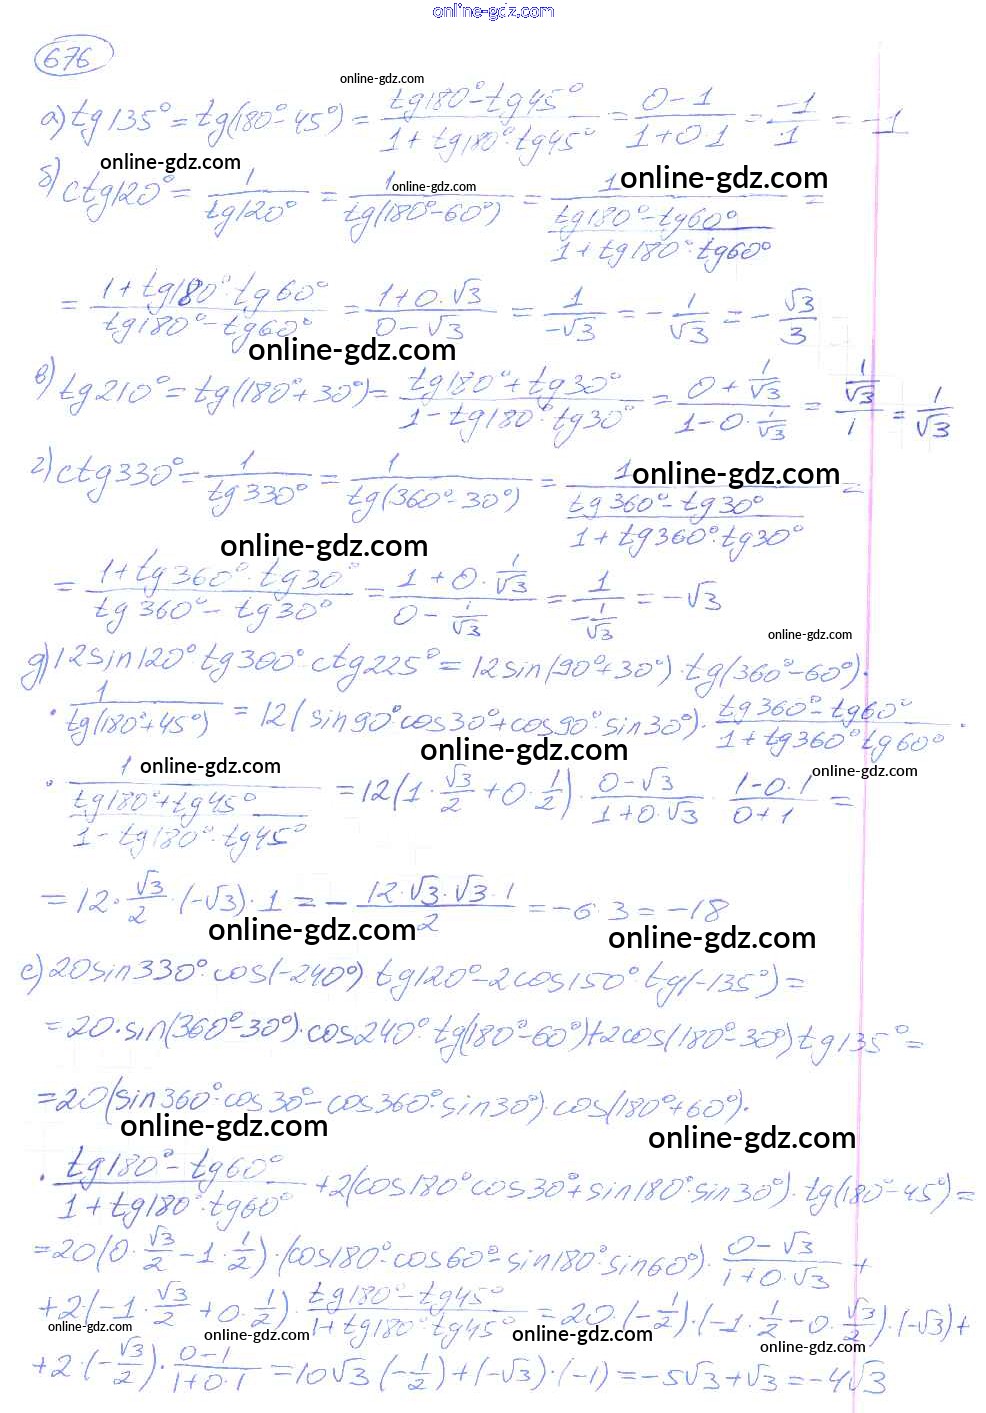 online-gdz.com
676
online-gdz.com
а) tg135° = tg(180°-45°) = (tg180°-tg45°)/(1+tg180°·tg45°) = (0-1)/(1+0·1) = -1/1 = -1
online-gdz.com
online-gdz.com
online-gdz.com
б) ctg120° = 1/tg120° = 1/tg(180°-60°) = 1/((tg180°-tg60°)/(1+tg180°·tg60°)) =
= (1+tg180°·tg60°)/(tg180°-tg60°) = (1+0·√3)/(0-√3) = 1/-√3 = -1/√3 = -√3/3
online-gdz.com
в) tg210° = tg(180°+30°) = (tg180°+tg30°)/(1-tg180°·tg30°) = (0+1/√3)/(1-0·1/√3) = (1/√3)/1 = 1/√3
г) ctg330° = 1/tg330° = 1/tg(360°-30°) = 1/((tg360°-tg30°)/(1+tg360°·tg30°)) =
online-gdz.com
online-gdz.com
= (1+tg360°·tg30°)/(tg360°-tg30°) = (1+0·1/√3)/(0-1/√3) = 1/(-1/√3) = -√3
online-gdz.com
д) 12sin120°·tg300°·ctg225° = 12sin(90°+30°)·tg(360°-60°)·
·1/tg(180°+45°) = 12(sin90°cos30°+cos90°sin30°)·(tg360°-tg60°)/(1+tg360°tg60°)·
online-gdz.com
online-gdz.com
online-gdz.com
·1/((tg180°+tg45°)/(1-tg180°·tg45°)) = 12(1·√3/2+0·1/2)·(0-√3)/(1+0·√3)·(1-0·1)/(0+1) =
= 12·√3/2·(-√3)·1 = -(12·√3·√3·1)/2 = -6·3 = -18
online-gdz.com
online-gdz.com
е) 20sin330°·cos(-240°) tg120°-2cos150°·tg(-135°) =
= 20·sin(360°-30°)·cos240°·tg(180°-60°)+2cos(180°-30°)tg135° =
= 20(sin360°·cos30°-cos360°·sin30°)·cos(180°+60°)·
online-gdz.com
online-gdz.com
·(tg180°-tg60°)/(1+tg180°·tg60°)+2(cos180°cos30°+sin180°·sin30°)·tg(180°-45°) =
= 20(0·√3/2-1·1/2)·(cos180°·cos60°-sin180°·sin60°)·(0-√3)/(1+0·√3)+
+2(-1·√3/2+0·1/2)·(tg180°-tg45°)/(1+tg180°·tg45°) = 20·(-1/2)·(-1·1/2-0·√3/2)·(-√3)+
online-gdz.com
online-gdz.com
online-gdz.com
online-gdz.com
+2·(-√3/2)·(0-1)/(1+0·1) = 10√3(-1/2)+(-√3)·(-1) = -5√3+√3 = -4√3